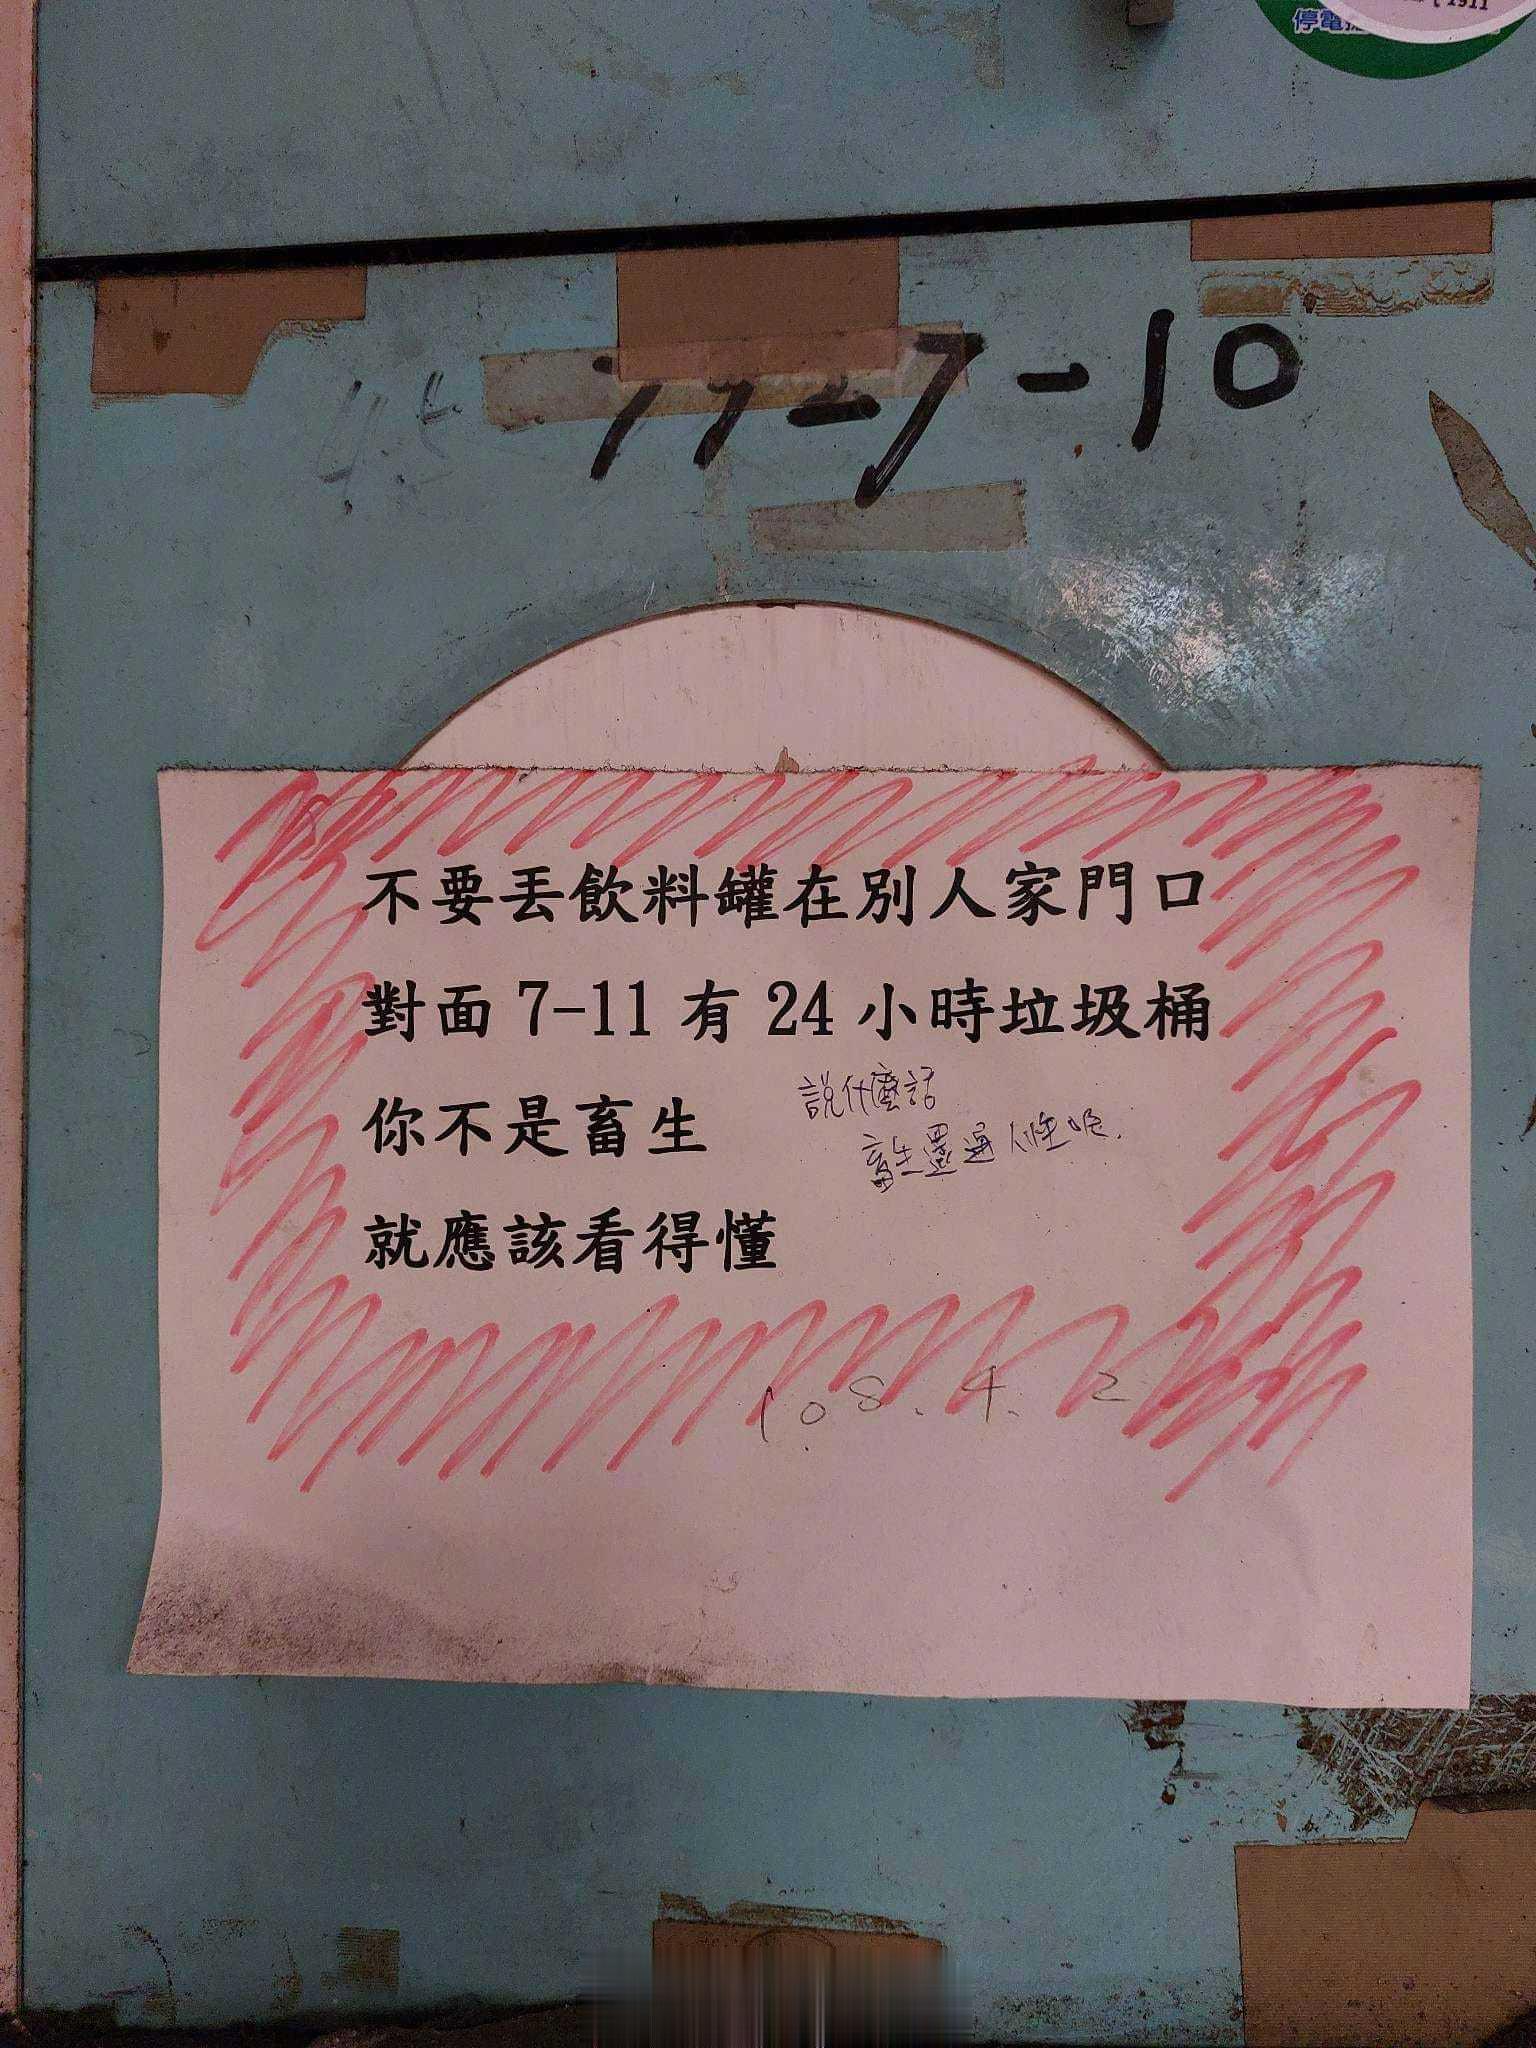 停電
1911
77-7-10
不要丟飲料罐在別人家門口
對面 7-11 有 24 小時垃圾桶
你不是畜生
說什麼話
畜生還通人性呢.
就應該看得懂
108.4.2